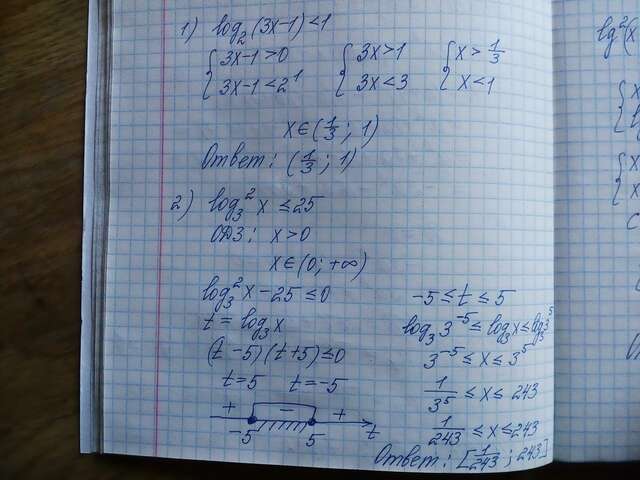 1) log₂(3x-1)<1
{3x-1>0 {3x>1 {x>1/3
{3x-1<2¹ {3x<3 {x<1
x∈(1/3; 1)
Ответ: (1/3; 1)
2) log₃²x ≤25
ОДЗ: x>0
x∈(0; +∞)
log₃²x-25≤0
t=log₃x
(t-5)(t+5)≤0
t=5 t=-5
+ - +
-5 5 t
-5≤t≤5
log₃3⁻⁵≤log₃x≤log₃3⁵
3⁻⁵≤x≤3⁵
1/3⁵≤x≤243
1/243≤x≤243
Ответ: [1/243; 243]
lg²(x
{x
{x
x